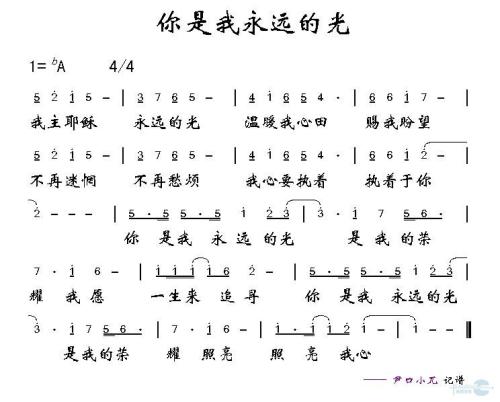 你是我永远的光
1= ♭A 4/4
5 2 1 5 - | 3 7 6 5 - | 4 1 6 5 4 · | 6 6 1 7 - |
我主耶稣 永远的光 温暖我心田 赐我盼望
5 2 1 5 - | 3 7 6 5 - | 4 1 6 5 4 · | 6 6 1 2 - |
不再迷惘 不再愁烦 我心要执着 执着于你
2 - - - | 5 · 5 5 · 5 | 5 1 2 3 | 3 · 1 7 5 6 |
你 是我 永远的光 是我的荣
7 · 1 6 - | 1 1 1 1 6 1 2 - | 5 · 5 5 · 5 | 5 1 2 3 |
耀 我愿 一生来 追寻 你 是我 永远的光
3 · 1 7 5 6 | 7 · 1 1 6 | 1 · 2 2 1 | 1 - 1 - ‖
是我的荣 耀 照亮 照亮 我心
—— 尹口小兀 记谱